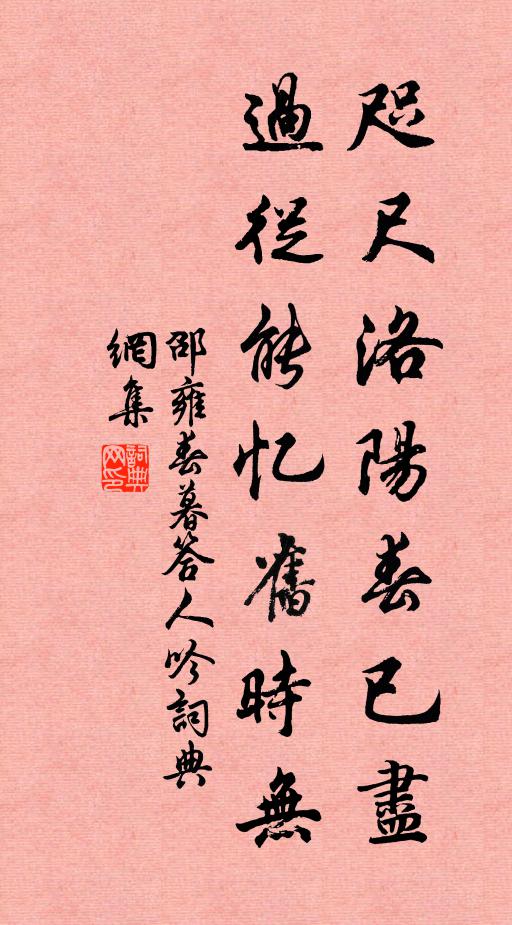 咫尺洛陽春已盡
過從能忆舊時無
邵雍春暮答人吟詞典
網集
詞典
网印